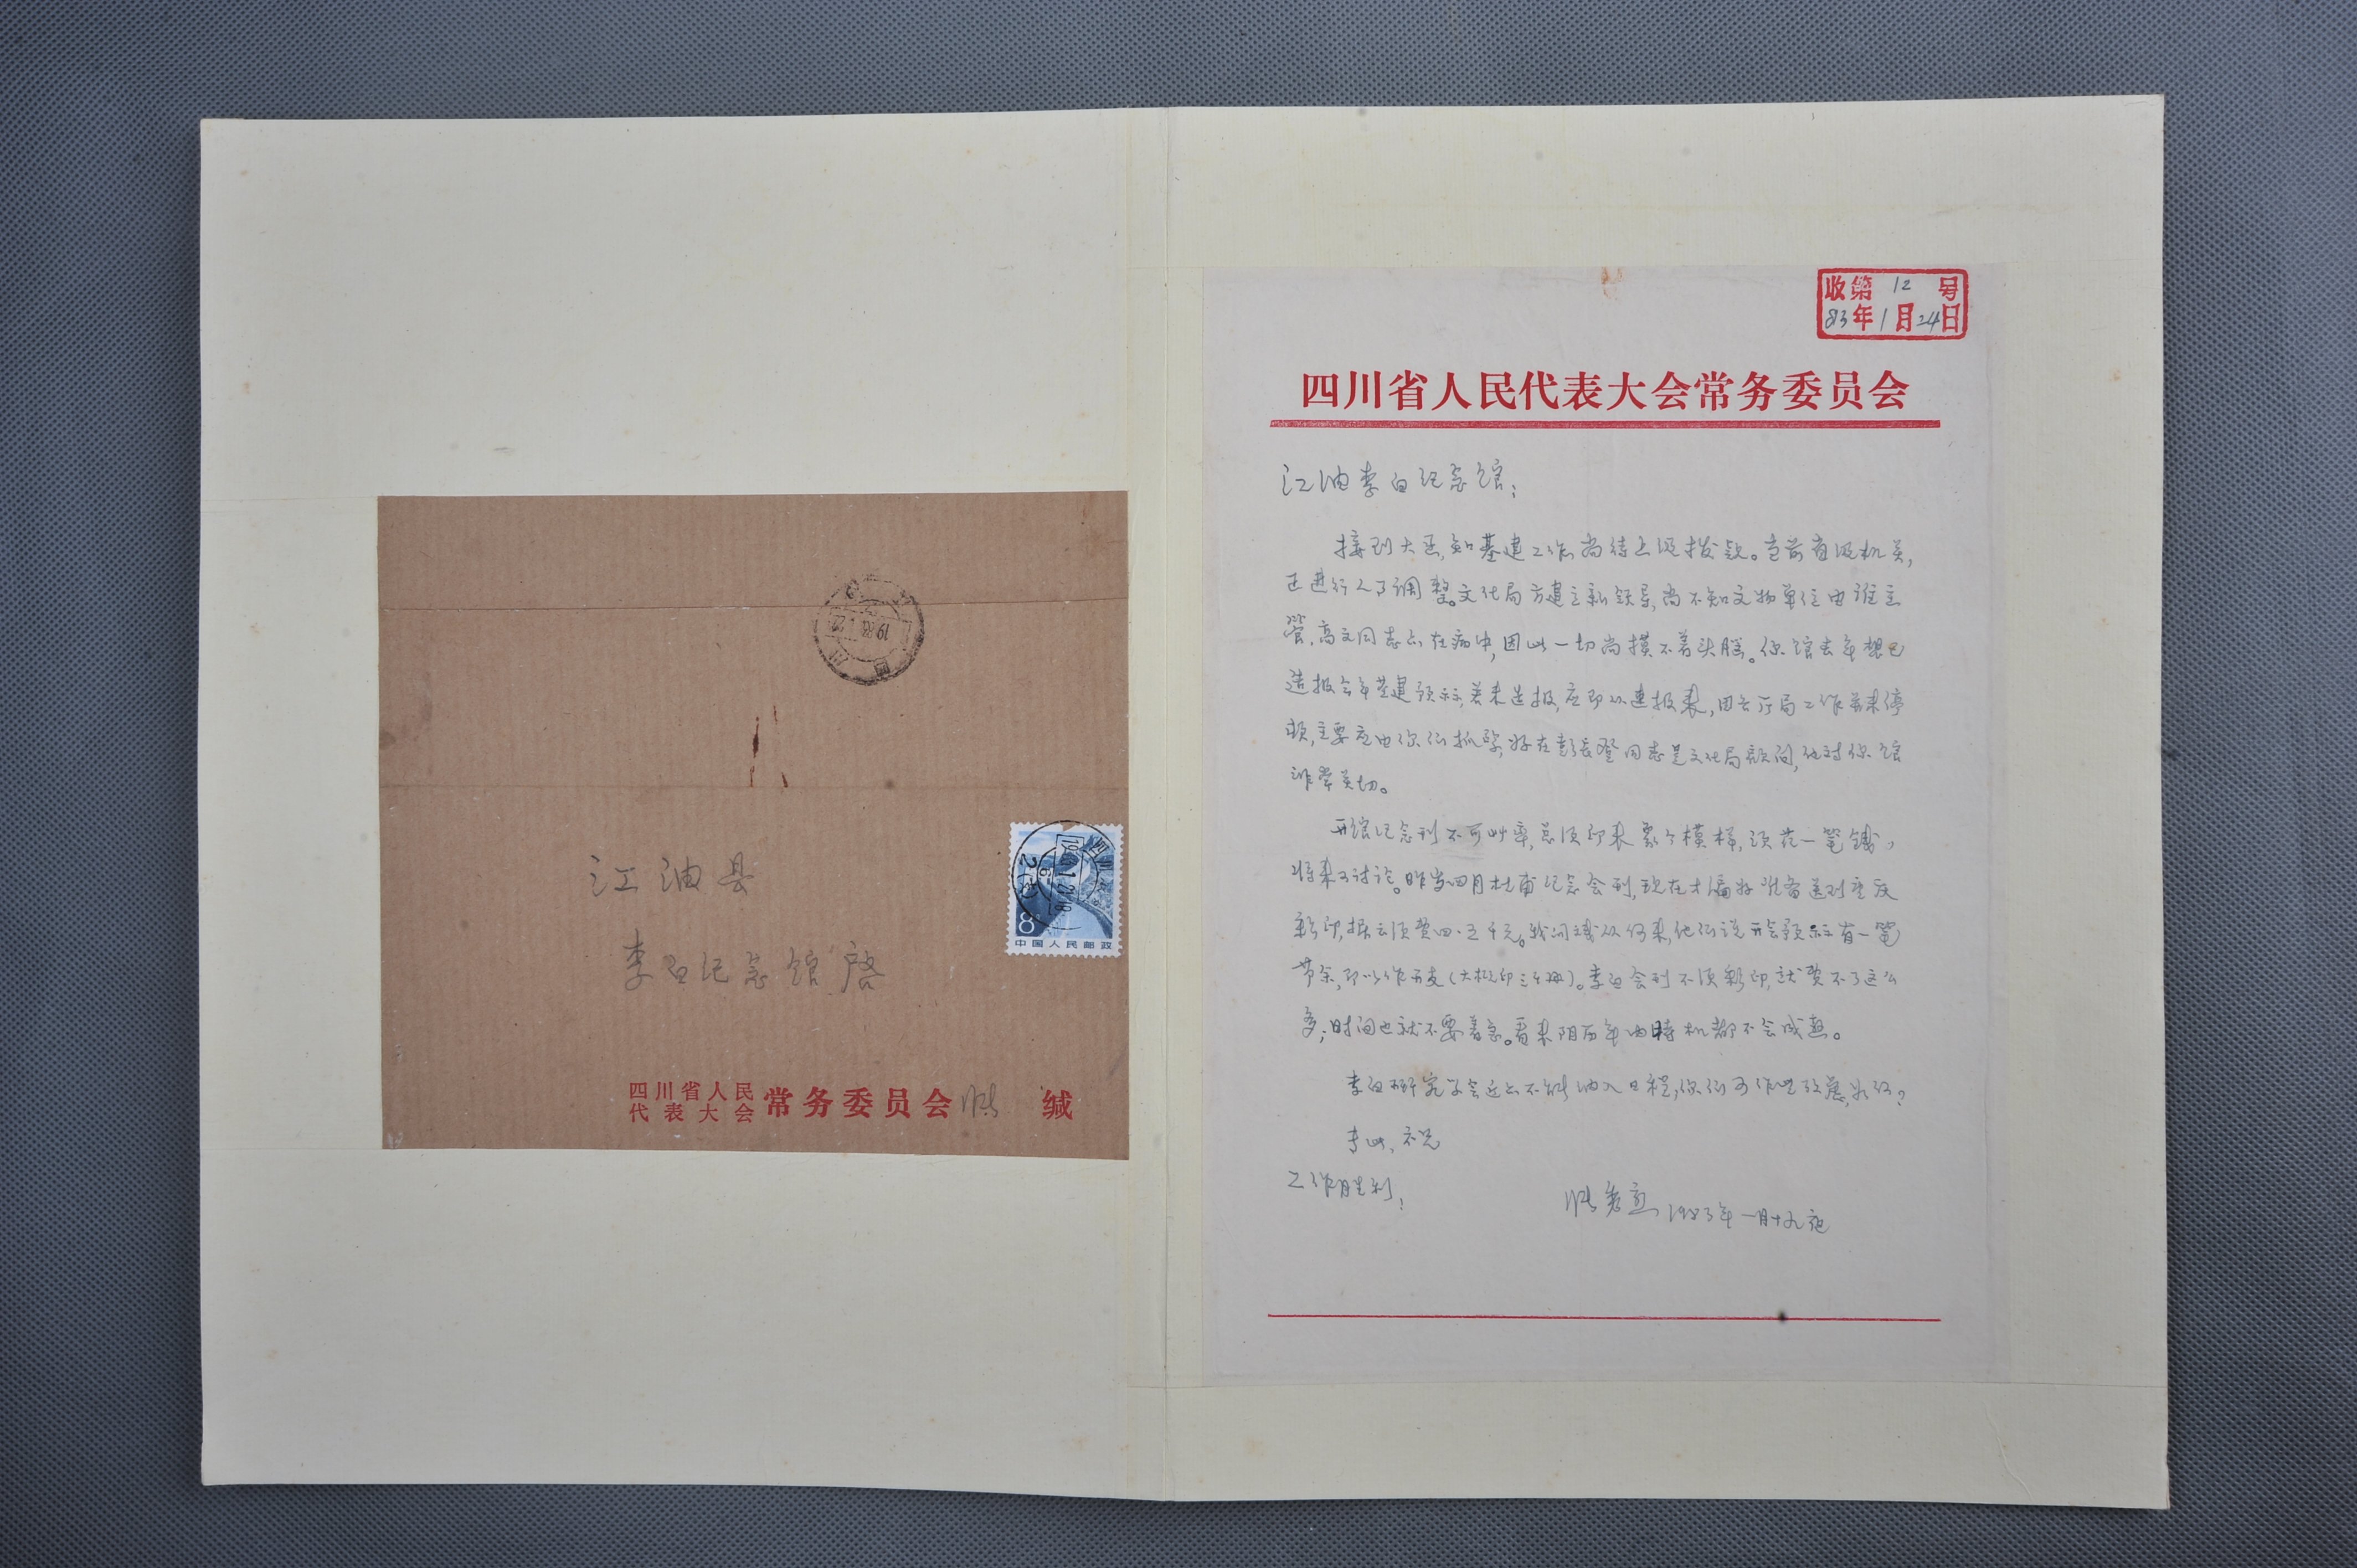 江油县
李白纪念馆 启
四川省人民
代表大会
常务委员会 缄
8
中国人民邮政
收第12号
83年1月24日
四川省人民代表大会常务委员会
江油李白纪念馆:
接到大函,知基建工作尚待上级拨款。当前省级机关,
正进行人了调整。文化局方建立新领导,尚不知文物单位由谁主
管,高文同志亦在病中,因此一切尚摸不着头脑。你馆去年想已
造报今年基建预示,若未造报,应即从速报来,因各厅局工作并未停
顿,主要应由你们抓紧,好在彭长登同志是文化局顾问,他对你馆
非常关切。
开馆纪念刊不可草率,总须印来象个模样,须花一笔钱,
将来可讨论。昨岁四月杜甫纪念会刊,现在才编好准备送到重庆
彩印,据云须费四、五千元。我问钱从何来,他们说开会预示有一笔
节余,即以作开支(大概印三千册)。李白会刊不须彩印,就费不了这么
多;时间也就不要着急。看来阴历年内时机都不会成熟。
李白研究学会近亦不能纳入日程,你们可作些改虑,如何?
专此,祝
工作胜利!
1983年一月十九